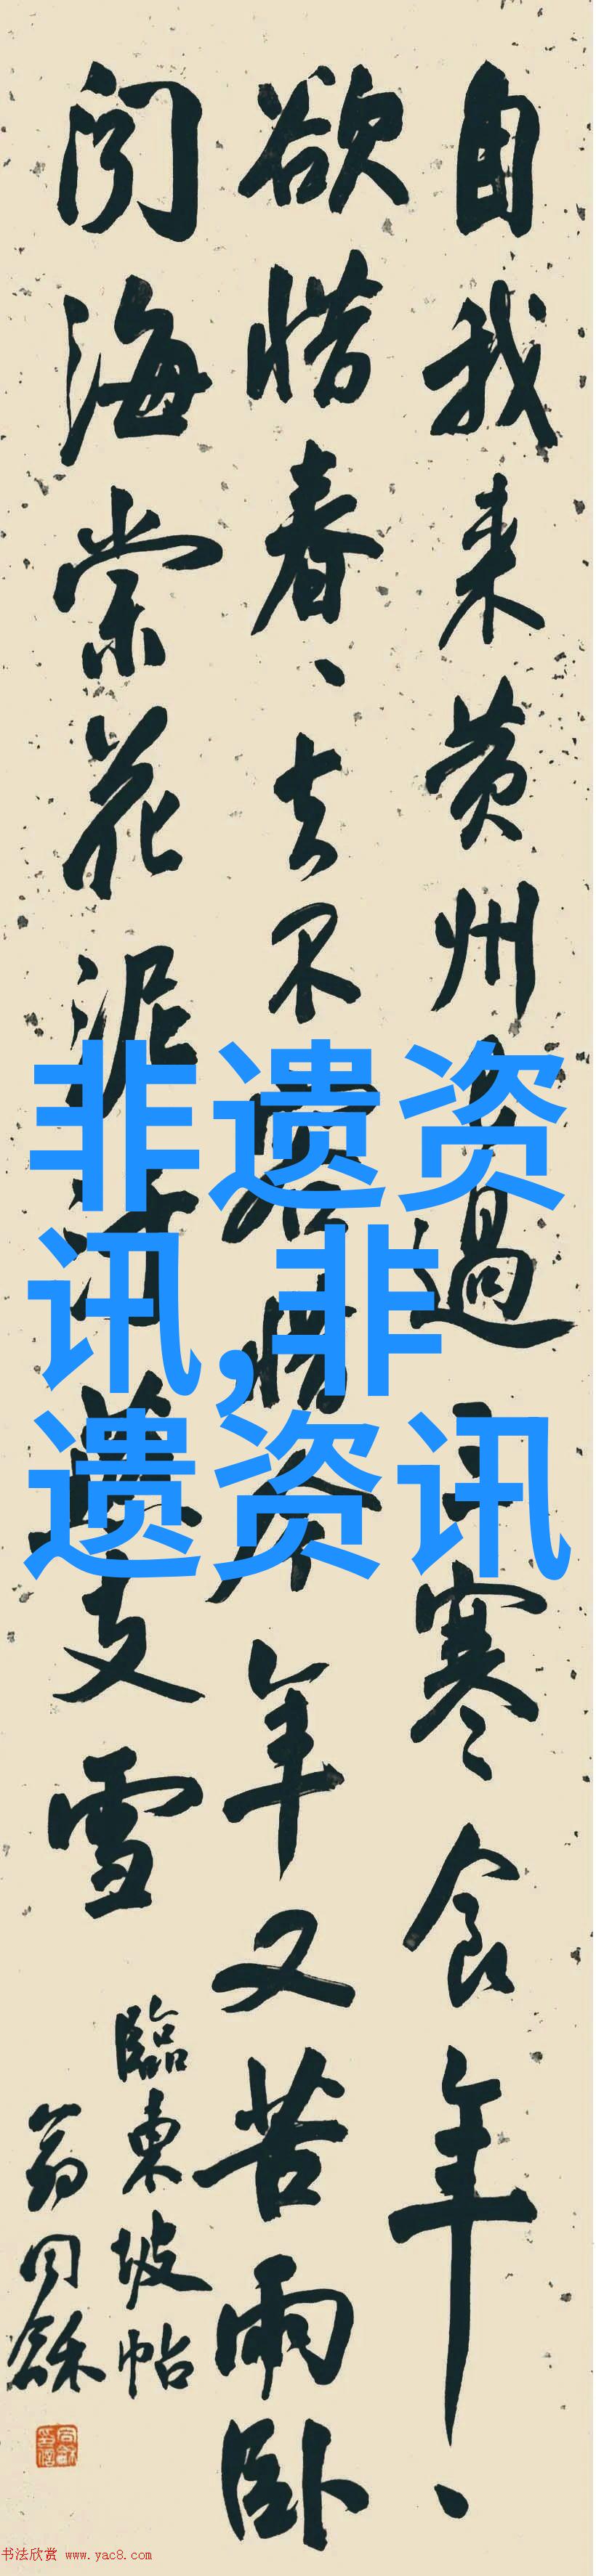 自我来黄州已過三寒食年、
欲惜春、去不容惜今年又苦雨卧
闻海棠花泥污燕支雪
臨東坡帖
翁同龢
非遗资
讯,非
遗资讯
书法欣赏 www.yac8.com